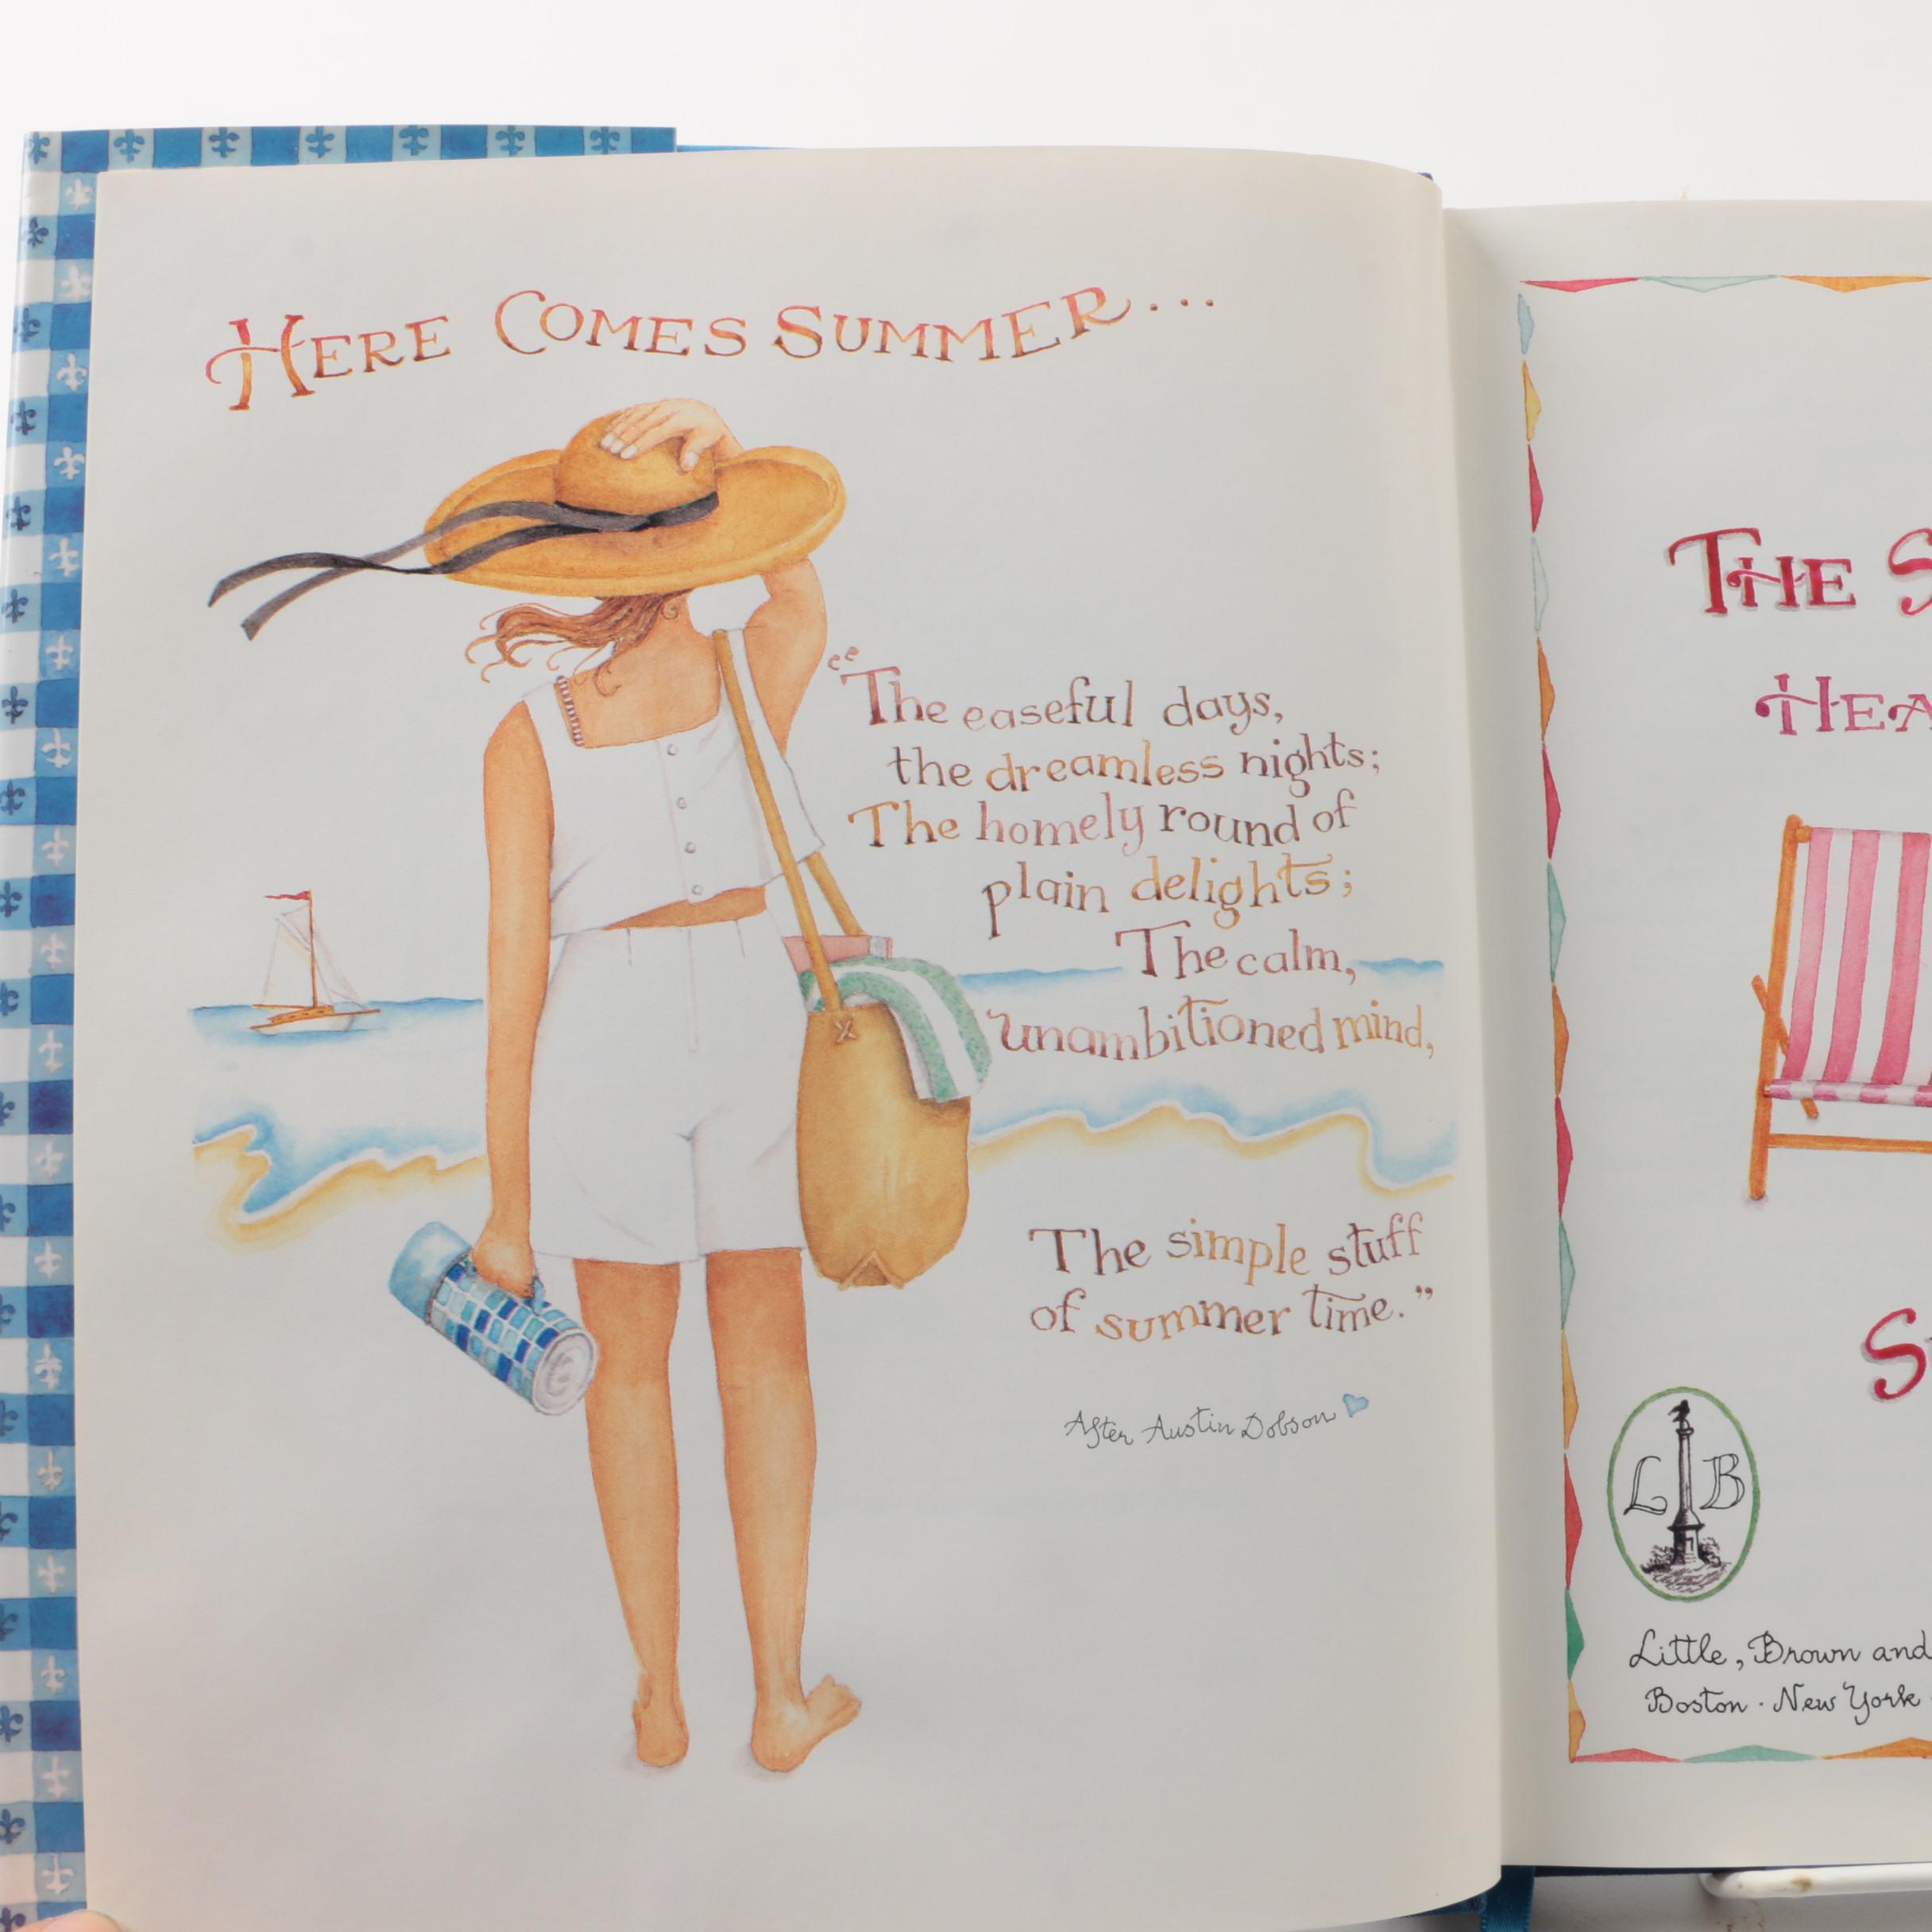 HERE COMES SUMMER...
"The easeful days,
the dreamless nights;
The homely round of
plain delights;
The calm,
unambitioned mind,
The simple stuff
of summer time."
After Austin Dobson
THE S
HEA
S
L B
Little, Brown and
Boston · New York